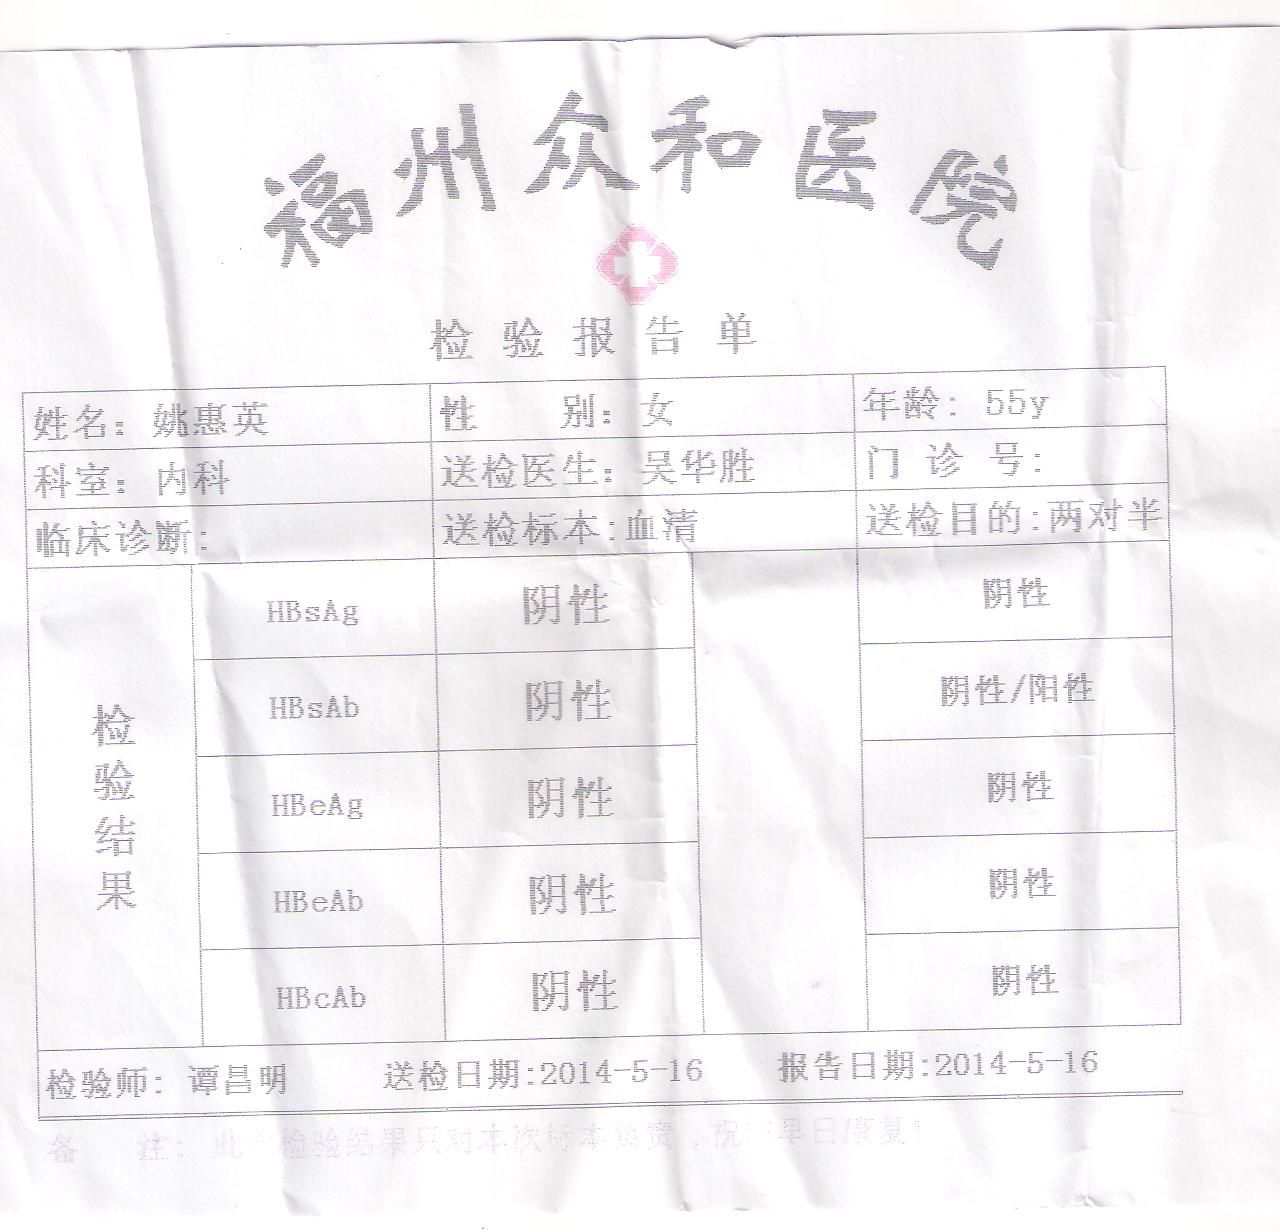 福州众和医院
检验报告单
姓名：姚惠英 性别：女 年龄：55y
科室：内科 送检医生：吴华胜 门诊号：
临床诊断： 送检标本：血清 送检目的：两对半
检验结果
HBsAg 阴性 阴性
HBsAb 阴性 阴性/阳性
HBeAg 阴性 阴性
HBeAb 阴性 阴性
HBcAb 阴性 阴性
检验师：谭昌明 送检日期:2014-5-16 报告日期:2014-5-16
备注：此检验结果只对本次标本负责，祝早日康复！